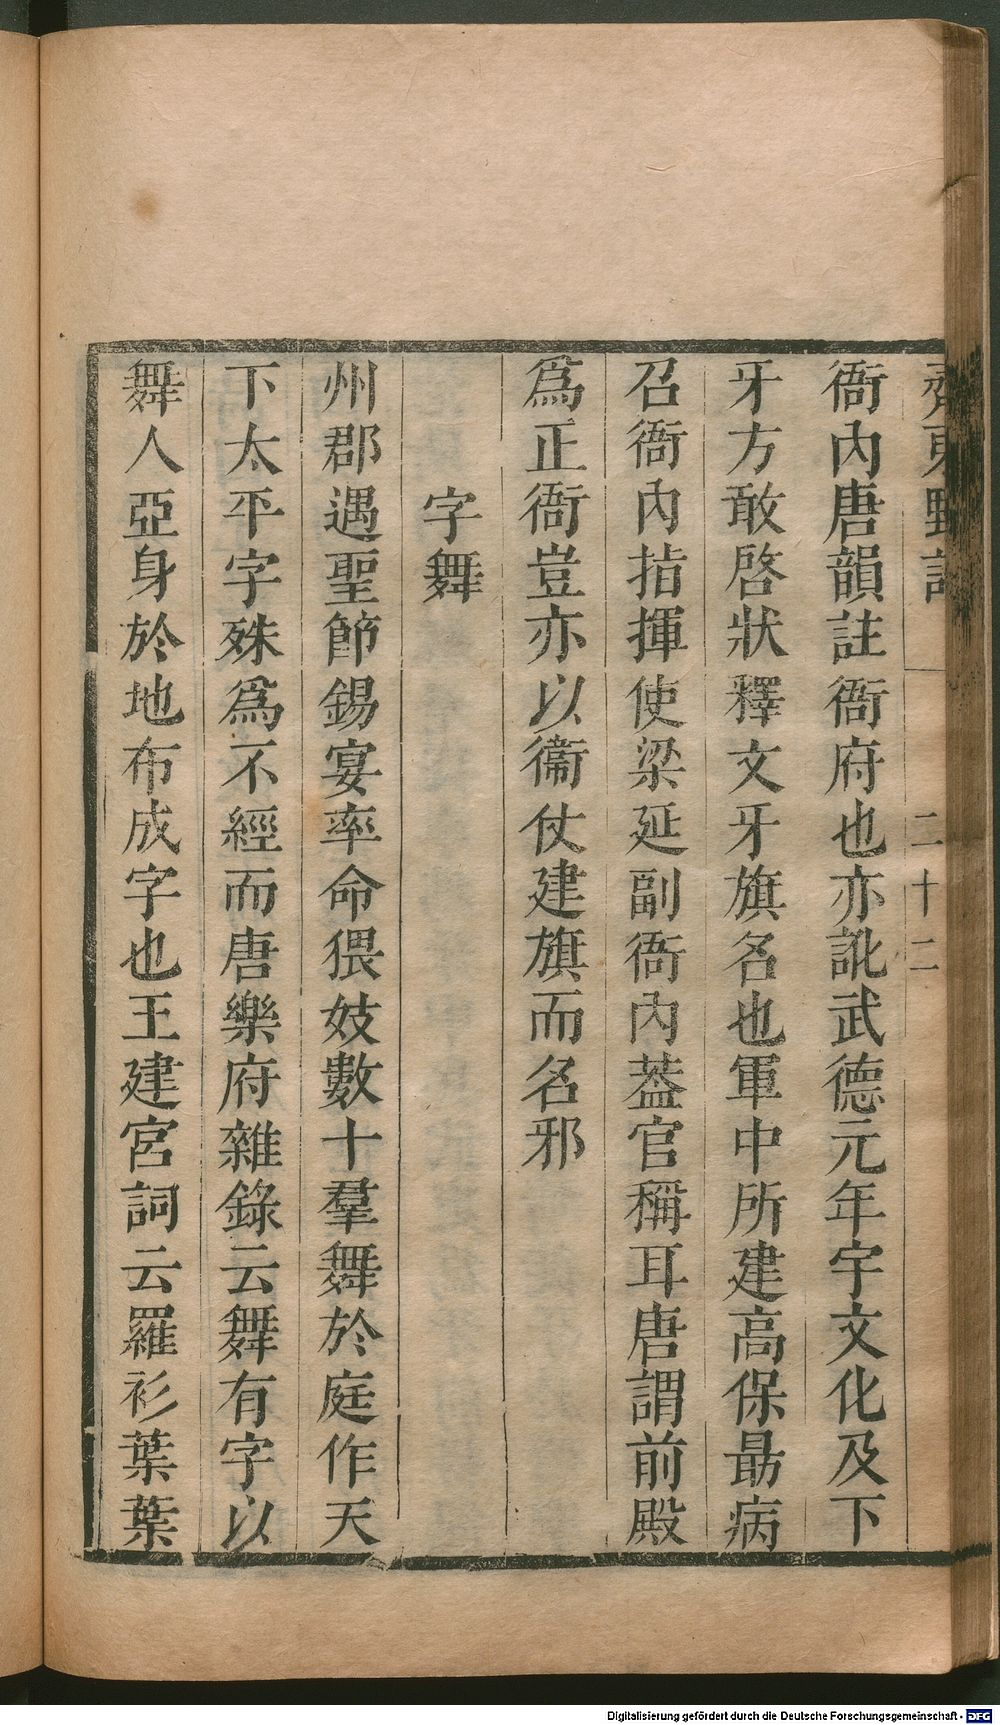 齊東野語 二十二
衙內唐韻註衙府也亦訛武德元年宇文化及下
牙方敢啓狀釋文牙旗名也軍中所建高保勗病
召衙內指揮使梁延副衙內葢官稱耳唐謂前殿
爲正衙豈亦以衞仗建旗而名邪
字舞
州郡遇聖節錫宴率命猥妓數十羣舞於庭作天
下太平字殊爲不經而唐樂府雜錄云舞有字以
舞人亞身於地布成字也王建宮詞云羅衫葉葉
Digitalisierung gefördert durch die Deutsche Forschungsgemeinschaft - DFG